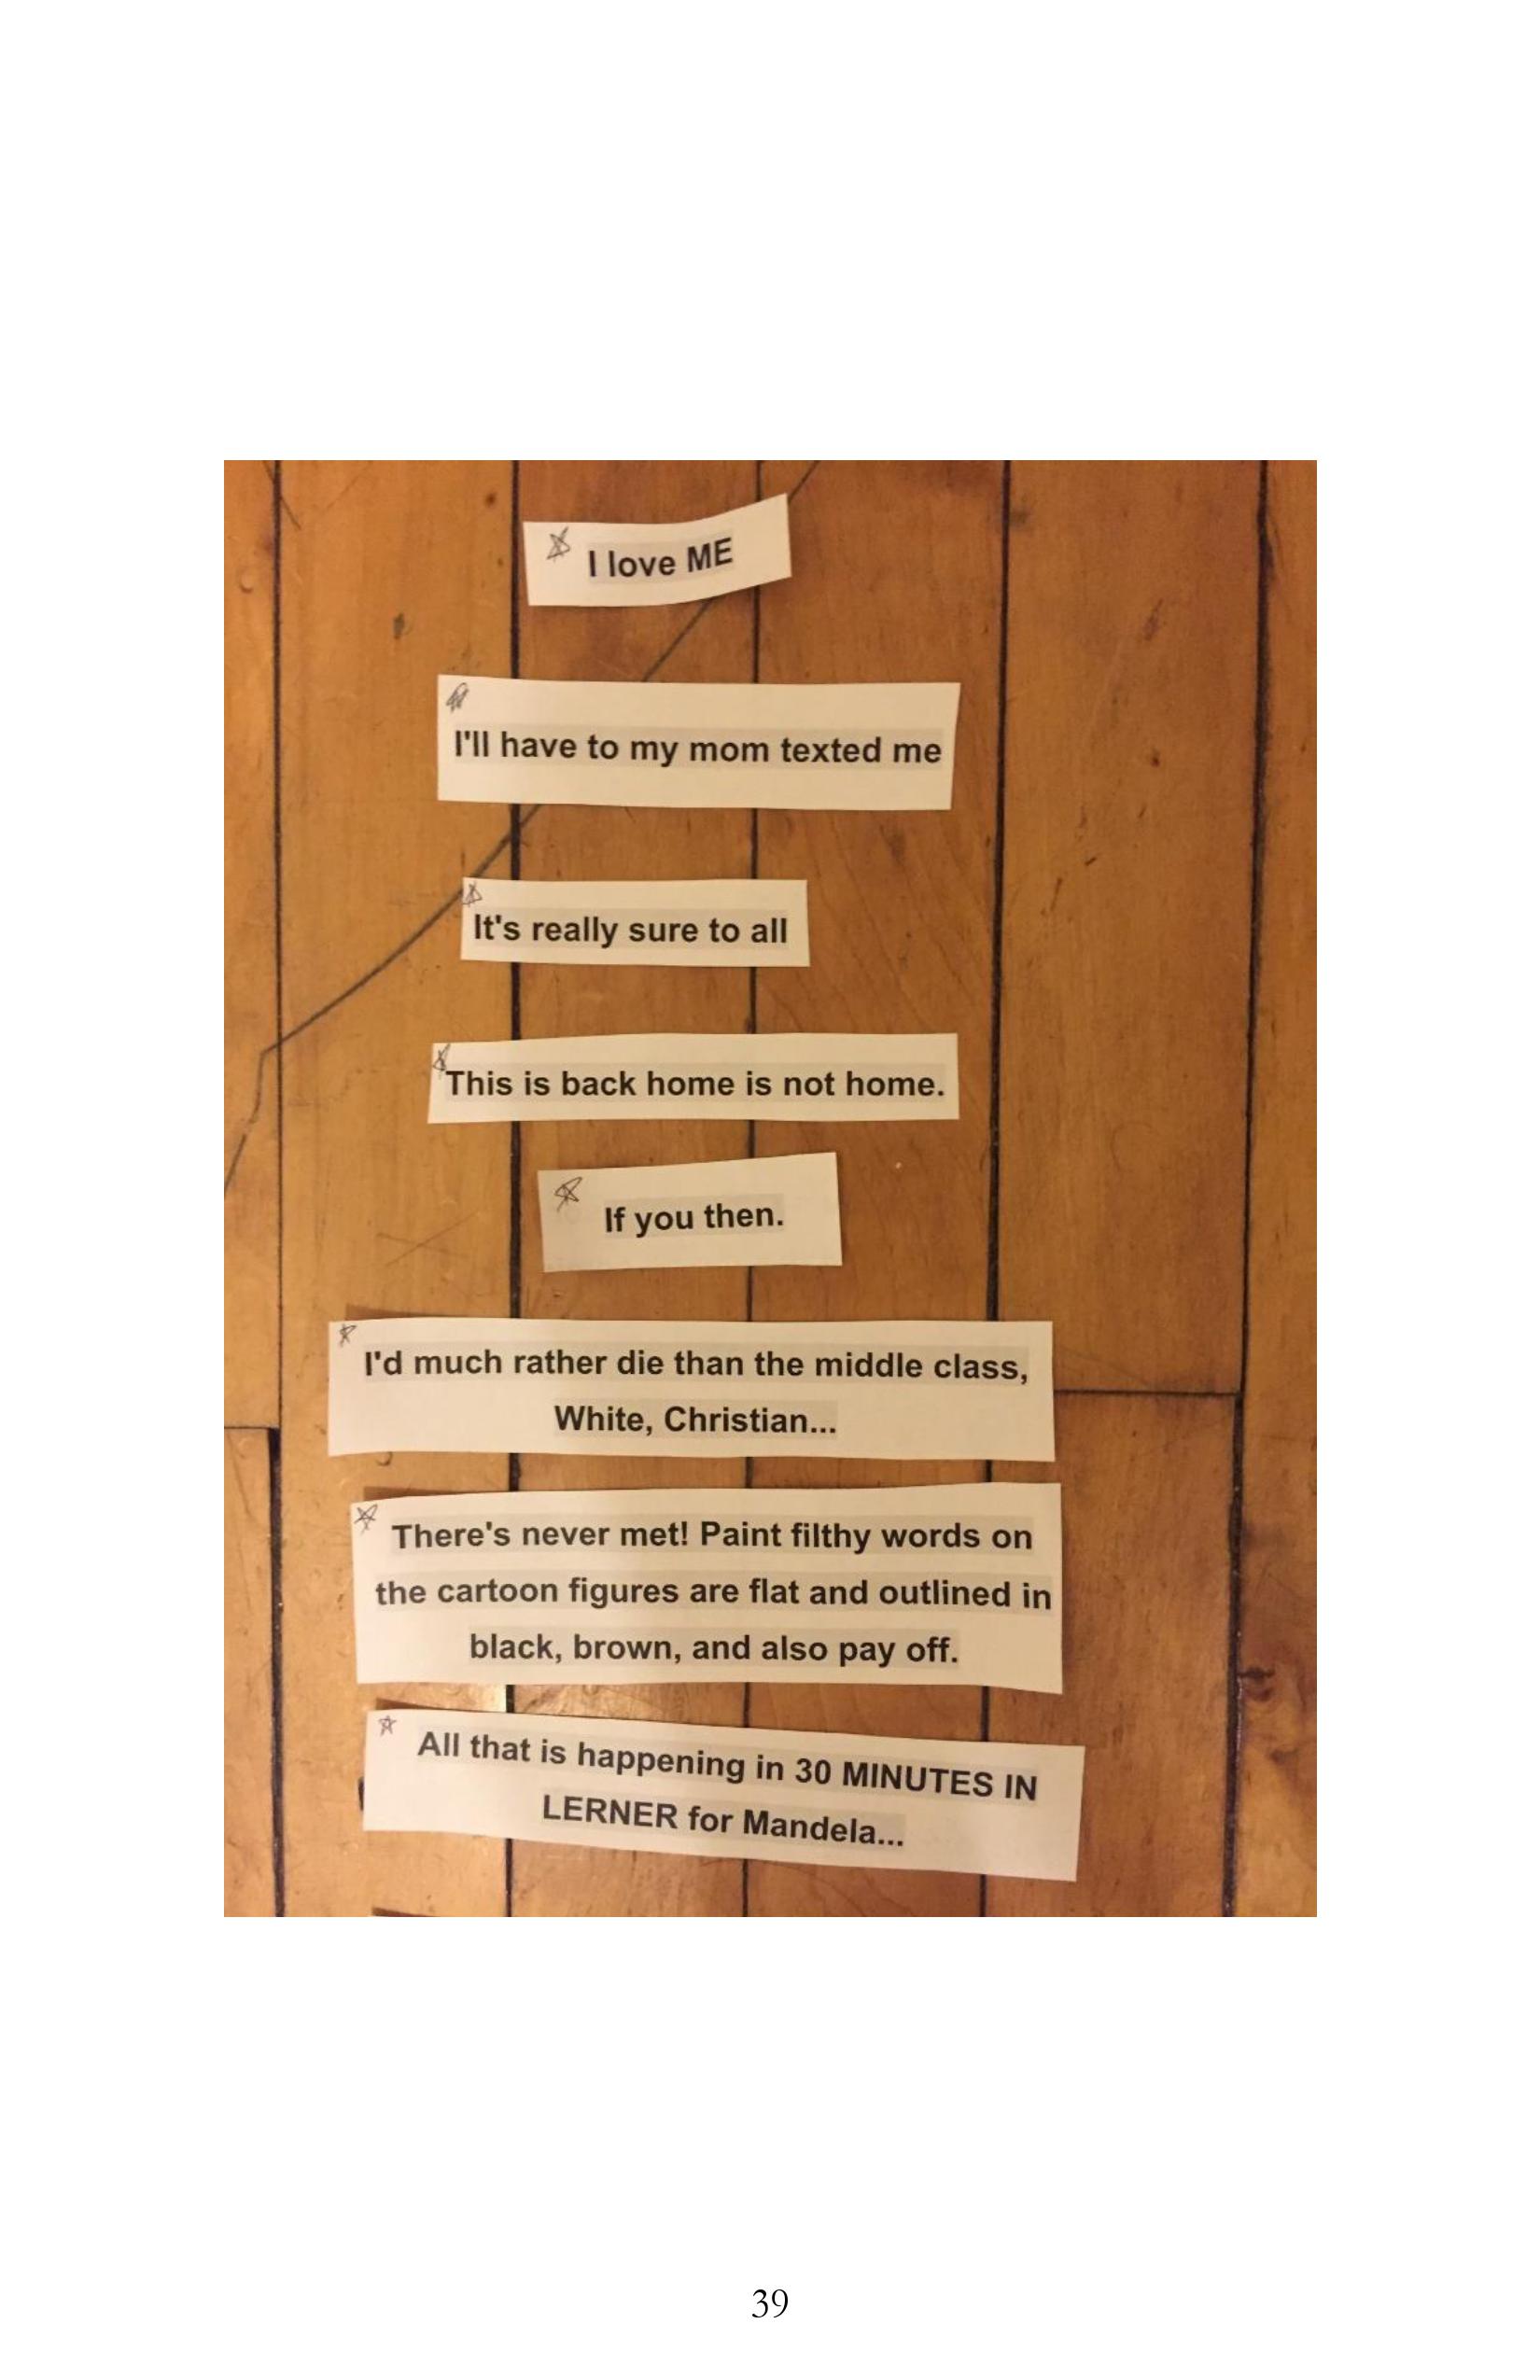 I love ME
I'll have to my mom texted me
It's really sure to all
This is back home is not home.
If you then.
I'd much rather die than the middle class,
White, Christian...
There's never met! Paint filthy words on
the cartoon figures are flat and outlined in
black, brown, and also pay off.
All that is happening in 30 MINUTES IN
LERNER for Mandela...
39